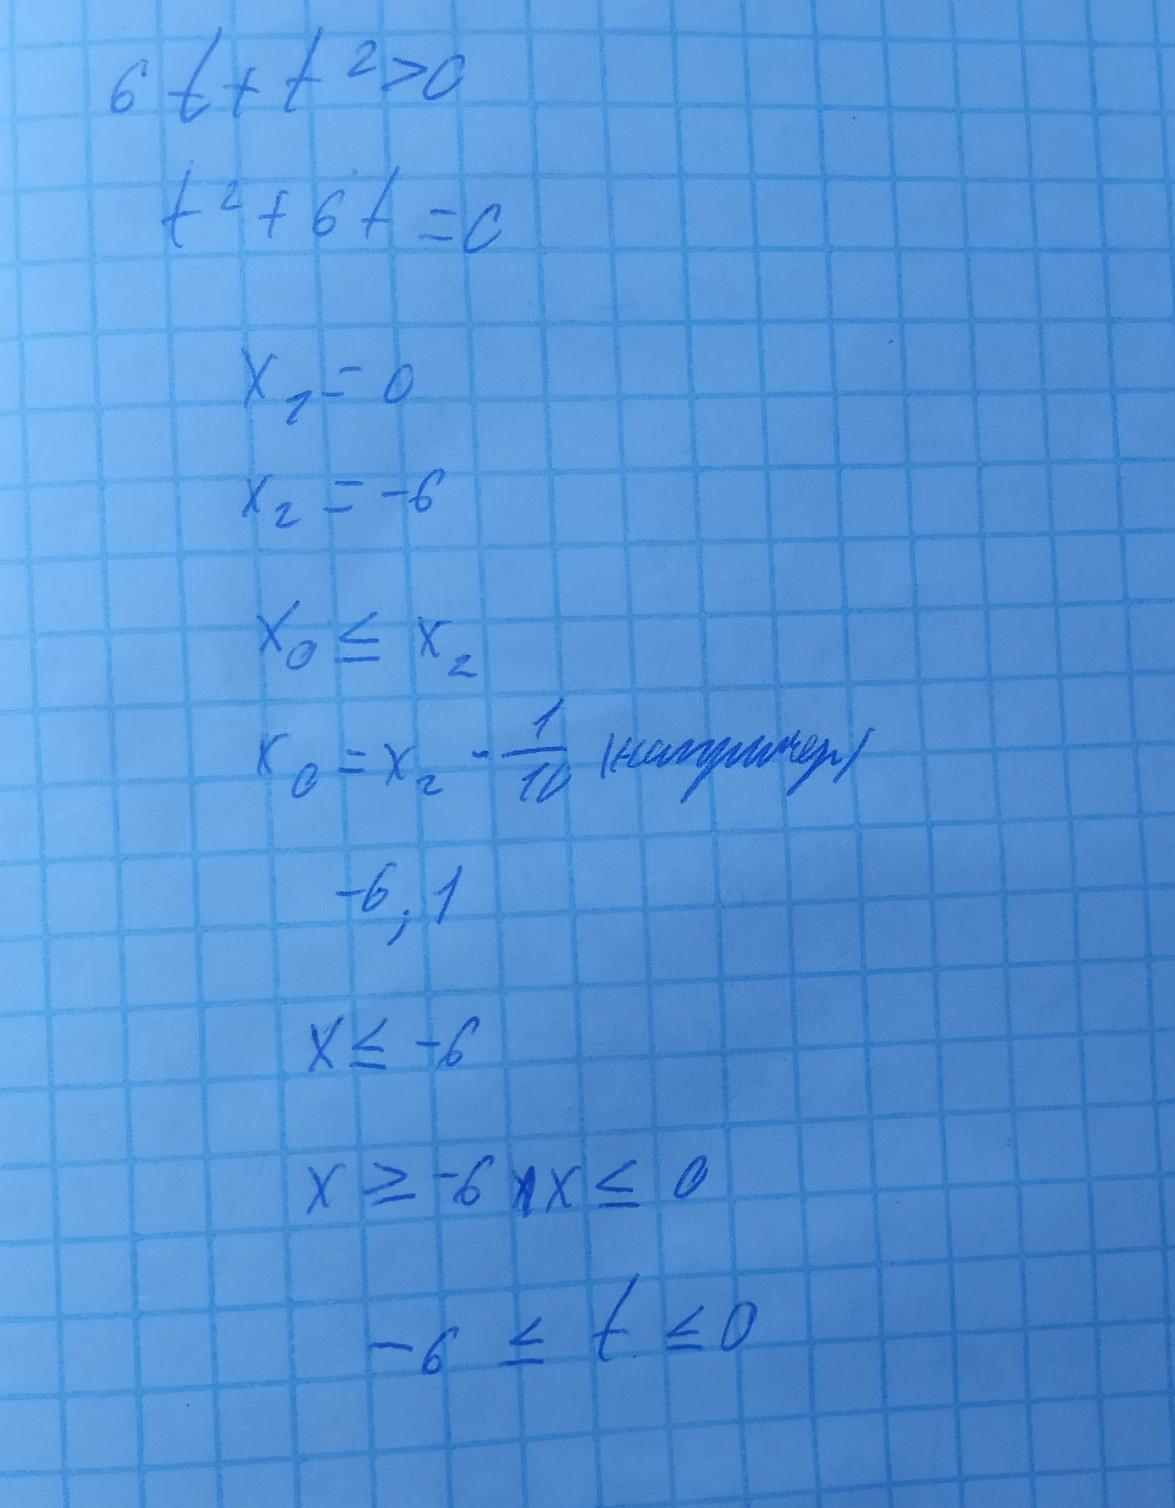 6t + t² > 0
t² + 6t = 0
x₁ = 0
x₂ = -6
x₀ ≤ x₂
x₀ = x₂ - 1/10 (например)
-6,1
x ≤ -6
x ≥ -6 x ≤ 0
-6 ≤ t ≤ 0